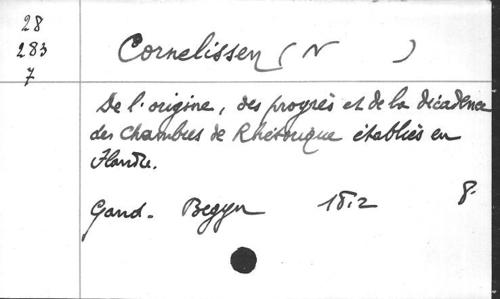 28
283
7
Cornelissen (N )
De l'origine, des progrès et de la décadence
des chambres de Rhétorique établies en
Flandre.
Gand. Begyn 1812 8.